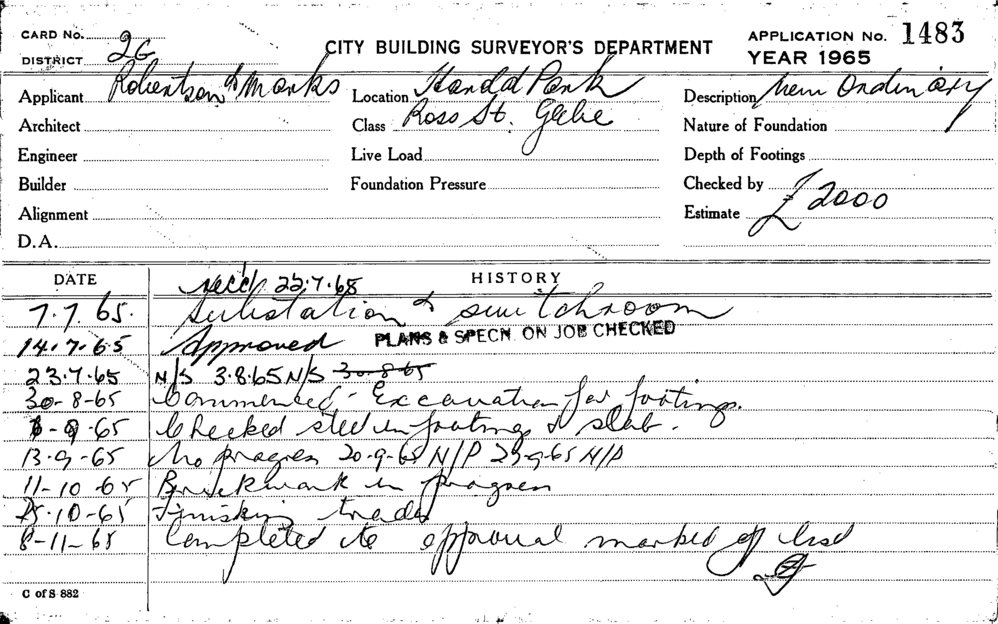 CARD No.
DISTRICT 2G
CITY BUILDING SURVEYOR'S DEPARTMENT
APPLICATION No. 1483
YEAR 1965
Applicant Robertson & Marks
Location Harold Park
Description New Ordinary
Architect
Class Ross St. Glebe
Nature of Foundation
Engineer
Live Load
Depth of Footings
Builder
Foundation Pressure
Checked by
Alignment
Estimate £ 2000
D.A.
DATE
HISTORY
recd 22.7.65
7.7.65. Substation & switchroom
14.7.65 Approved PLANS & SPECN. ON JOB CHECKED
23.7.65 N/S 3.8.65 N/S 30-8-65
30-8-65 Commenced - Excavation for footings.
9-65 Checked steel in footings & slab.
13-9-65 No progress 20-9-65 N/P 23-9-65 N/P
11-10-65 Brickwork in progress
25-10-65 Finishing trades
8-11-65 Completed to approval marked off
C of S 882